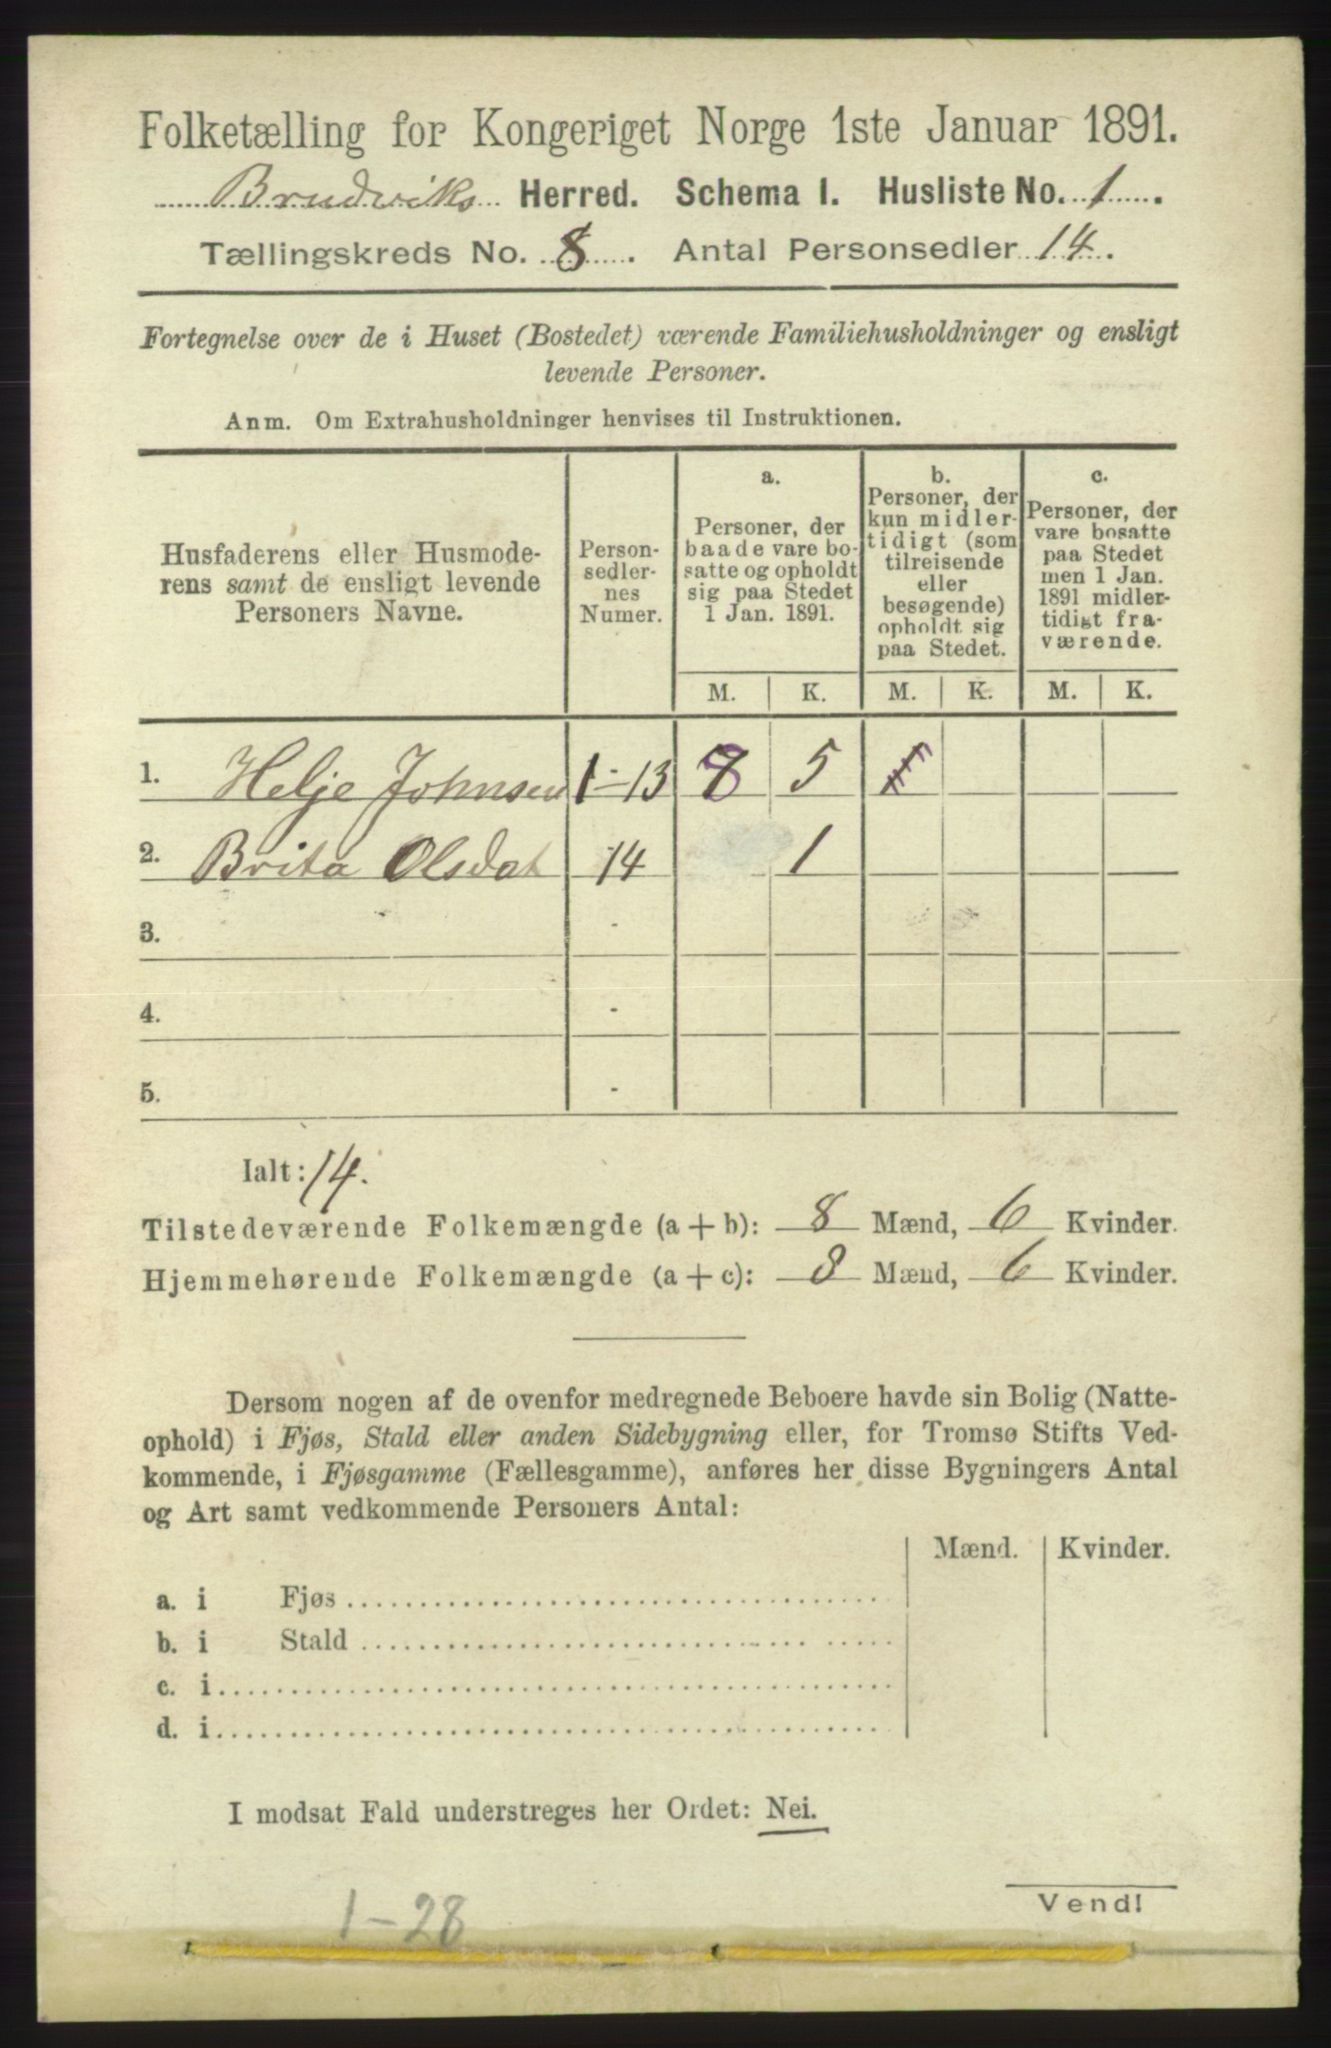 Folketælling for Kongeriget Norge 1ste Januar 1891.
Brudviks Herred. Schema I. Husliste No. 1.
Tællingskreds No. 8. Antal Personsedler 14.
Fortegnelse over de i Huset (Bostedet) værende Familiehusholdninger og ensligt
levende Personer.
Anm. Om Extrahusholdninger henvises til Instruktionen.
Husfaderens eller Husmode-
rens samt de ensligt levende
Personers Navne.
Person-
sedler-
nes
Numer.
a.
Personer, der
baade vare bo-
satte og opholdt
sig paa Stedet
1 Jan. 1891.
b.
Personer, der
kun midler-
tidigt (som
tilreisende
eller
besøgende)
opholdt sig
paa Stedet.
c.
Personer, der
vare bosatte
paa Stedet
men 1 Jan.
1891 midler-
tidigt fra-
værende.
M. K. M. K. M. K.
1. Helje Johnsen 1-13 8 5
2. Brita Olsdat 14 1
3. -
4. -
5. -
Ialt: 14.
Tilstedeværende Folkemængde (a + b): 8 Mænd, 6 Kvinder.
Hjemmehørende Folkemængde (a + c): 8 Mænd, 6 Kvinder.
Dersom nogen af de ovenfor medregnede Beboere havde sin Bolig (Natte-
ophold) i Fjøs, Stald eller anden Sidebygning eller, for Tromsø Stifts Ved-
kommende, i Fjøsgamme (Fællesgamme), anføres her disse Bygningers Antal
og Art samt vedkommende Personers Antal:
Mænd. Kvinder.
a. i Fjøs
b. i Stald
c. i
d. i
I modsat Fald understreges her Ordet: Nei.
Vend!
1-28